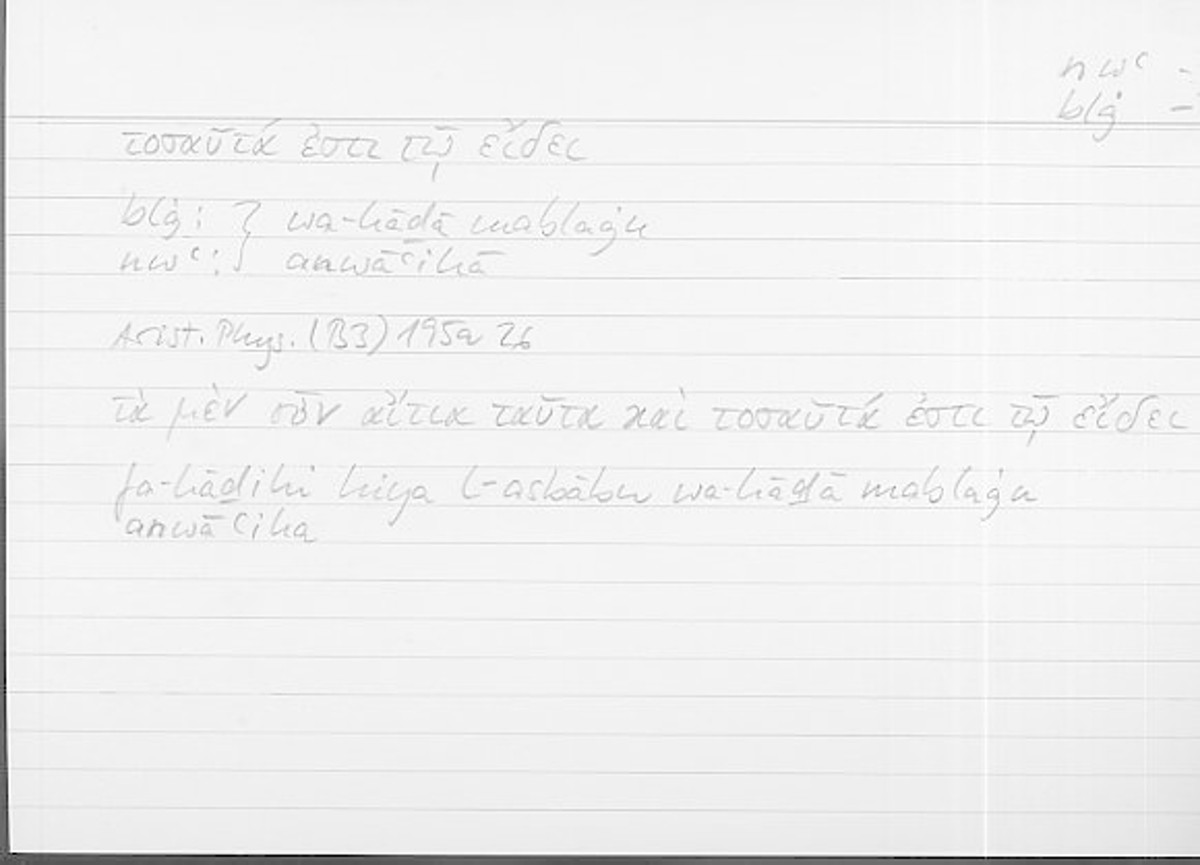 nwʿ -
blġ -
τοσαῦτά ἐστι τῷ εἴδει
blġ : } wa-hāḏā mablaġu
nwʿ : } anwāʿihā
Arist. Phys. (B3) 195a 26
τὰ μὲν οὖν αἴτια ταῦτα καὶ τοσαῦτά ἐστι τῷ εἴδει
fa-hāḏihi hiya l-asbābu wa-hāḏā mablaġu
anwāʿiha